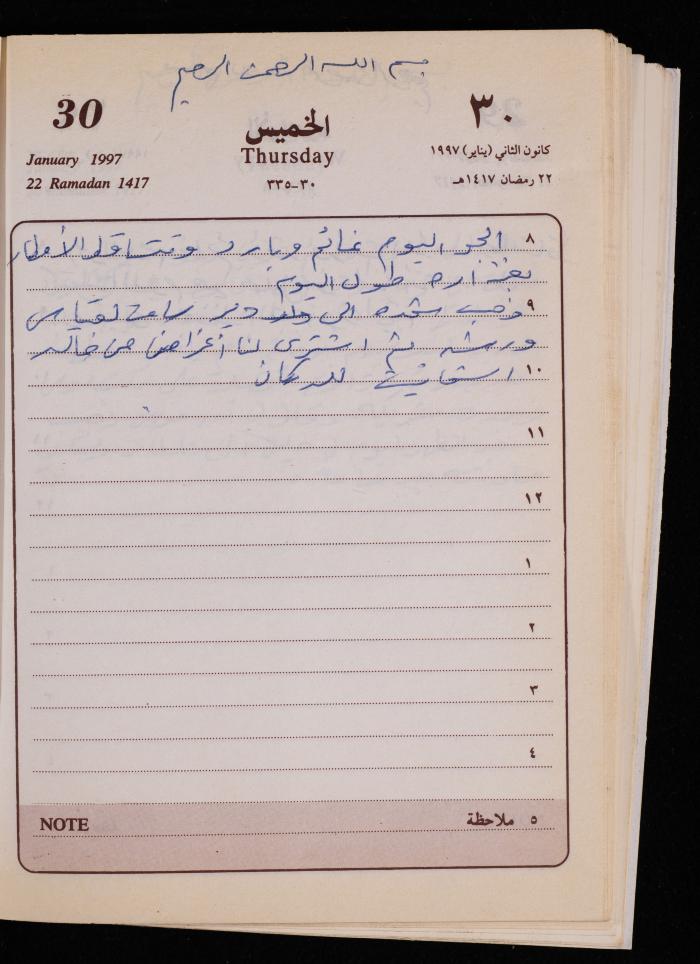 بسم الله الرحمن الرحيم
30 الخميس ٣٠
January 1997 Thursday كانون الثاني (يناير) ١٩٩٧
22 Ramadan 1417 ٣٠-٣٣٥ ٢٢ رمضان ١٤١٧هـ
٨
الجو اليوم غائم وبارد وتتساقط الأمطار
بغزاره طول اليوم
٩
وذهب سعده الى دير
ورشه ثم اشترى لنا أغراض من
١٠
للدكان
١١
١٢
١
٢
٣
٤
NOTE ٥ ملاحظة